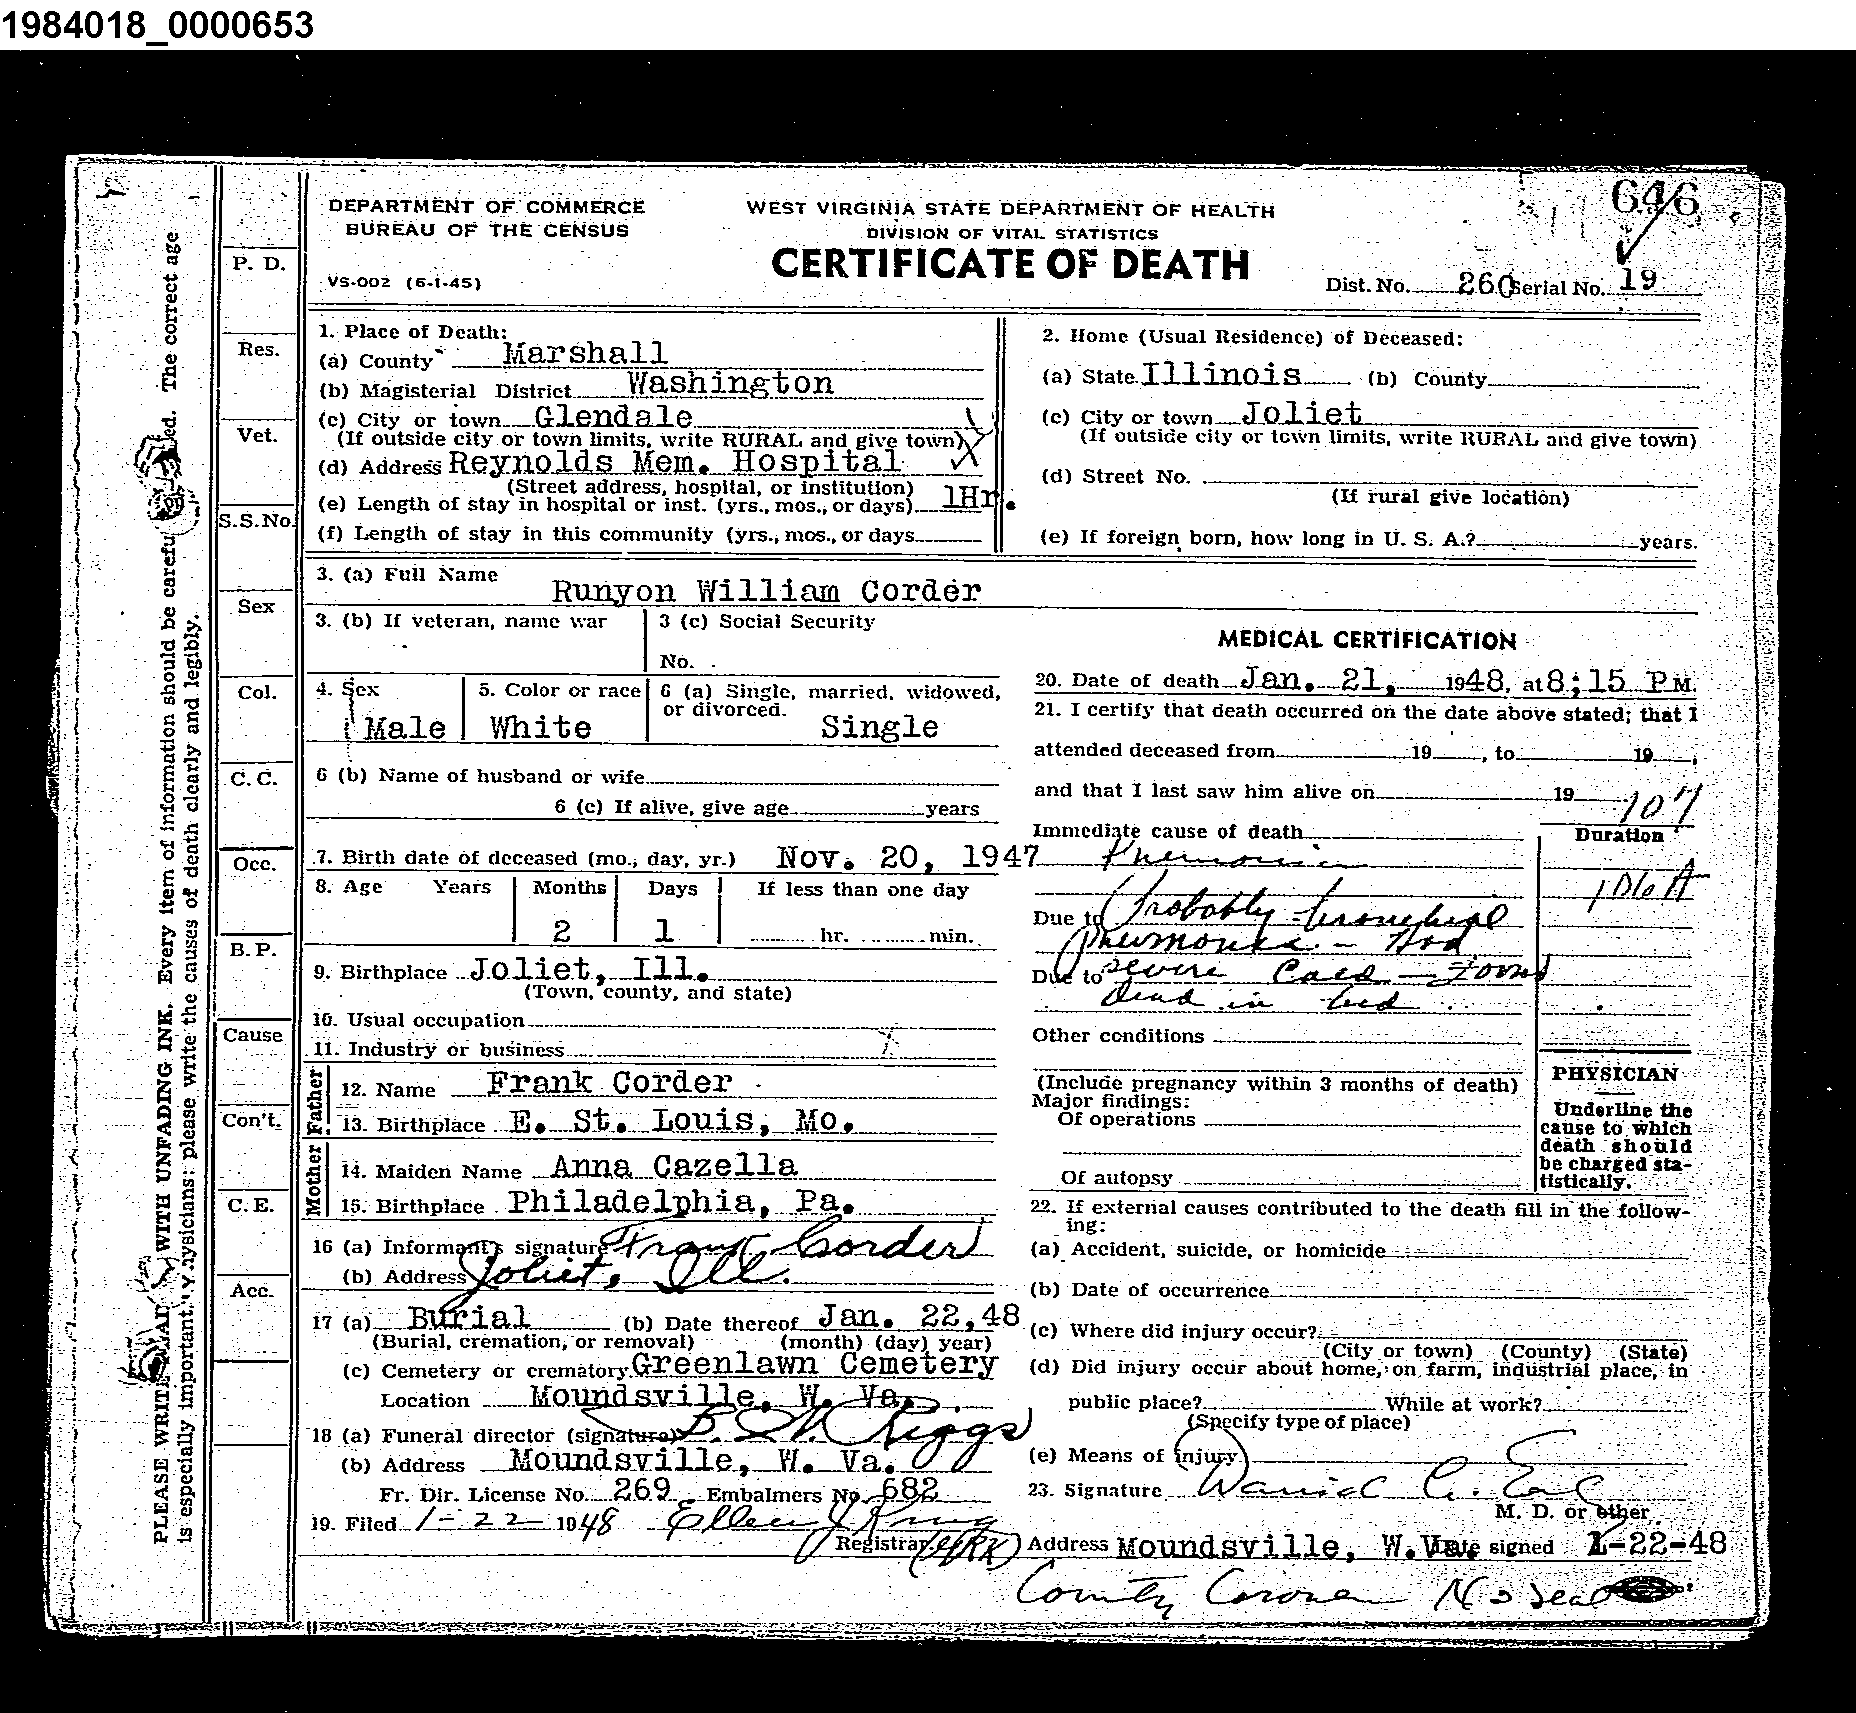 1984018_0000653
646
DEPARTMENT OF COMMERCE
BUREAU OF THE CENSUS
VS-002 (6-1-45)
WEST VIRGINIA STATE DEPARTMENT OF HEALTH
DIVISION OF VITAL STATISTICS
CERTIFICATE OF DEATH
Dist. No. 260 Serial No. 19
PLEASE WRITE WITH UNFADING INK. Every item of information should be The correct age
is especially important. Physicians: please write the causes of death clearly and legibly.
P. D.
Res.
Vet.
S.S.No.
Sex
Col.
C.C.
Occ.
B.P.
Cause
Con't.
C.E.
Acc.
1. Place of Death:
(a) County Marshall
(b) Magisterial District Washington
(c) City or town Glendale
(If outside city or town limits, write RURAL and give town)
(d) Address Reynolds Mem. Hospital
(Street address, hospital, or institution)
(e) Length of stay in hospital or inst. (yrs., mos., or days) 1Hr.
(f) Length of stay in this community (yrs., mos., or days
2. Home (Usual Residence) of Deceased:
(a) State Illinois (b) County
(c) City or town Joliet
(If outside city or town limits, write RURAL and give town)
(d) Street No.
(If rural give location)
(e) If foreign born, how long in U. S. A.? years.
3. (a) Full Name Runyon William Corder
3. (b) If veteran, name war
3 (c) Social Security
No.
4. Sex Male
5. Color or race White
6 (a) Single, married, widowed,
or divorced. Single
6 (b) Name of husband or wife
6 (c) If alive, give age years
7. Birth date of deceased (mo., day, yr.) Nov. 20, 1947
8. Age Years Months Days If less than one day
2 1 hr. min.
9. Birthplace Joliet, Ill.
(Town, county, and state)
10. Usual occupation
11. Industry or business
Father
12. Name Frank Corder
13. Birthplace E. St. Louis, Mo.
Mother
14. Maiden Name Anna Cazella
15. Birthplace Philadelphia, Pa.
16 (a) Informant's signature Frank Corder
(b) Address Joliet, Ill.
17 (a) Burial (b) Date thereof Jan. 22,48
(Burial, cremation, or removal) (month) (day) year)
(c) Cemetery or crematory Greenlawn Cemetery
Location Moundsville, W. Va.
18 (a) Funeral director (signature) Riggs
(b) Address Moundsville, W. Va.
Fr. Dir. License No. 269 Embalmers No. 682
19. Filed 1-22-1948 Ellen
Registrar
MEDICAL CERTIFICATION
20. Date of death Jan. 21, 1948, at 8;15 P M.
21. I certify that death occurred on the date above stated; that I
attended deceased from 19 , to 19 ,
and that I last saw him alive on 19
107
Immediate cause of death Duration
Pneumonia
Due to Probably bronchial
pneumonia - Had
Due to severe cold - Found
dead in bed
Other conditions
(Include pregnancy within 3 months of death)
Major findings:
Of operations
Of autopsy
PHYSICIAN
Underline the
cause to which
death should
be charged sta-
tistically.
22. If external causes contributed to the death fill in the follow-
ing:
(a) Accident, suicide, or homicide
(b) Date of occurrence
(c) Where did injury occur?
(City or town) (County) (State)
(d) Did injury occur about home, on farm, industrial place, in
public place? While at work?
(Specify type of place)
(e) Means of injury
23. Signature
M. D. or other
Address Moundsville, W.Va. Date signed 1-22-48
County Coroner No Seal